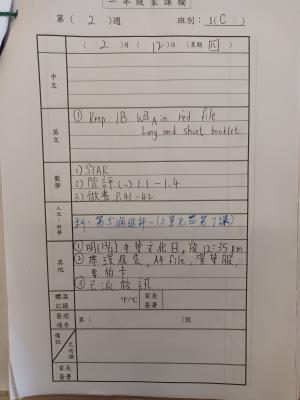 一年級家課欄
第( 2 )週 班別: 1(C)
( 2 )月( 12 )日(星期 四 )
中文
英文
① Keep 1B WB A in red file
Long and short booklet
數學
1) STAR
2) 階評(一) 1.1 - 1.4
3) 做書 P.41-42
人文/科學
其他
① 明(13/2)中華文化日,放12:35pm
② 帶環保袋, A4 file, 穿華服,
③ 已派
體溫記錄
°F/°C
家長簽署
簽閱通告
第( )號
備註
欠功課
家長簽署